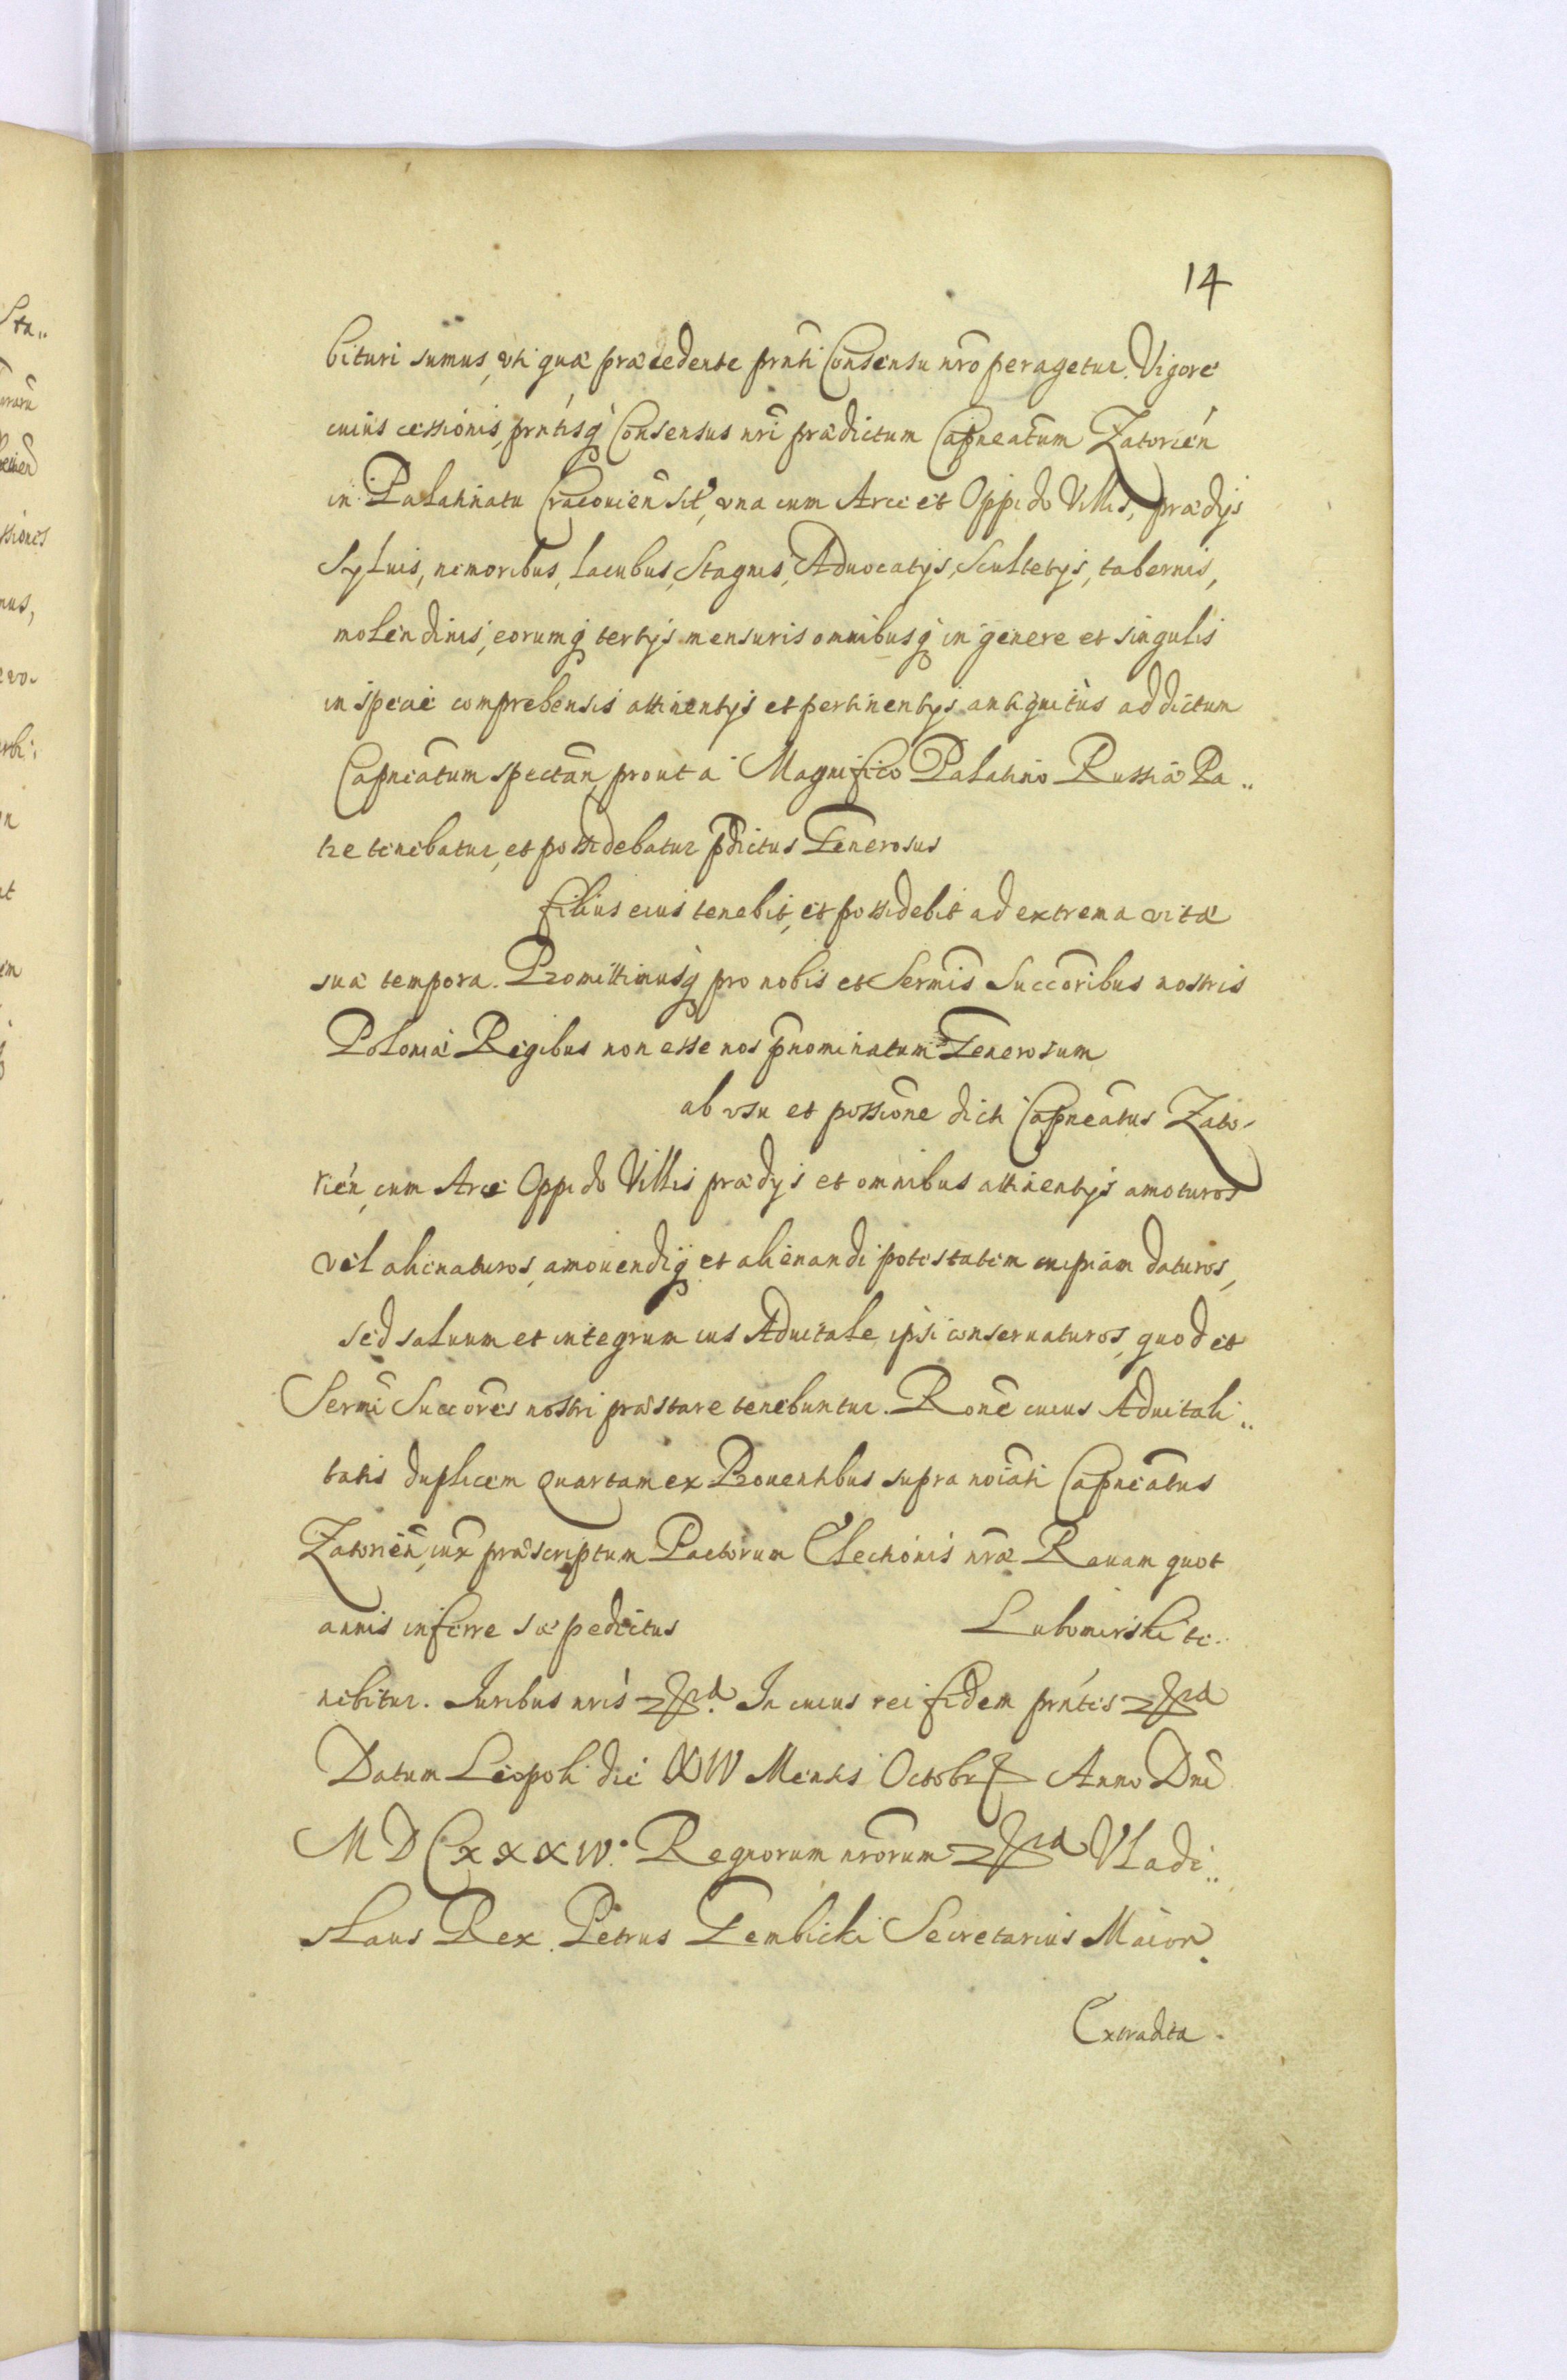 14
bituri sumus, uti quæ præcedente prnti Consensu nrõ peragetur. Vigore
cuius cessionis, prntisq Consensus nri prædictum Capneatum Zatorien
in Palatinatu Cracouien sit, vna cum Arce et Oppido Villis, prædijs
Syluis, nemoribus, lacubus, Stagnis, Aduocatijs, Scultetijs, tabernis,
molendinis, eorumq tertijs mensuris omnibusq in genere et singulis
in specie comprehensis attinentijs et pertinentijs antiquitus ad dictum
Capneatum spectan, prout a Magnifico Palatino Russiæ Pa..
tre tenebatur, et possidebatur pdictus Generosus
filius eius tenebit, et possidebit ad extrema vitæ
suæ tempora. Promittimusq pro nobis et Sermis Succoribus nostris
Poloniæ Regibus non esse nos pnominatum Generosum
ab vsu et possione dicti Capneatus Zato-
rien, cum Arce Oppido Villis prædijs et omnibus attinentijs amoturos
vel alienaturos, amouendiq et alienandi potestatem cuipiam daturos,
sed saluum et integrum ius Aduitale ipsi conseruaturos, quod et
Sermi Succores nostri præstare tenebuntur. Rone cuius Aduitali..
tatis duplicem quartam ex Prouentibus supra noiati Capneatus
Zatorien, iux præscriptum Pactorum Electionis nræ Rauam quot
annis inferre sæpedictus Lubomirski te..
nebitur. Iuribus nris In cuius rei fidem prntes
Datum Leopoli die XW Mensis Octobr Anno Dni
MDCXXXIV. Regnorum nrorum Vladi..
slaus Rex. Petrus Gembicki Secretarius Maior.
Extradita.